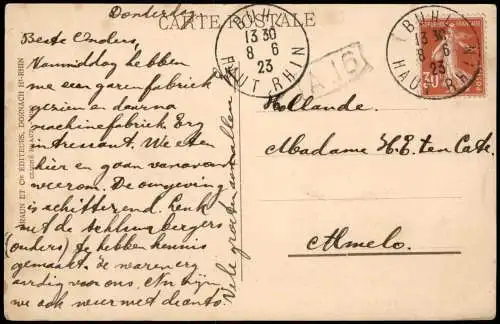 CARTE POSTALE
Donderdag
Beste Ouders,
Vanmiddag hebben
we een garenfabriek
gezien en daarna
machinefabriek. Erg
intressant. We eten
hier en gaan vanavond
weerom. De omgeving
is schitterend. Henk
met de Schlumbergers
(ouders) hebben kennis
gemaakt. Ze waren erg
aardig voor ons. Nu zijn
we ook weer met de auto.
Vele groeten van allen
BRAUN ET Cie ÉDITEURS, DORNACH Ht-RHIN
BUHL
13 30
8 6
23
HAUT RHIN
A 16
BUHL
13 30
8 6
23
HAUT RHIN
30
Hollande.
Madame H.E. ten Cate
Almelo.